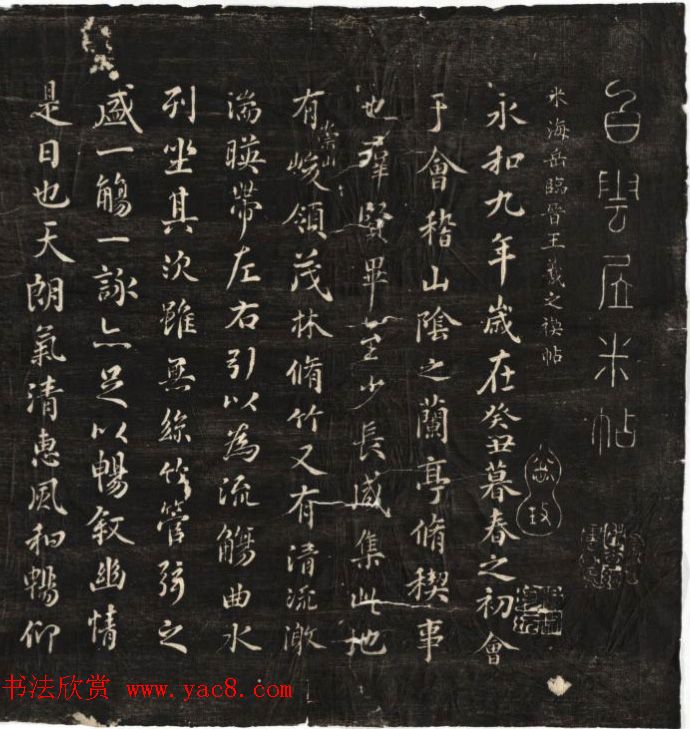 白雲居米帖
米海岳臨晉王羲之禊帖
永和九年歲在癸丑暮春之初會
于會稽山陰之蘭亭脩稧事
也羣賢畢至少長咸集此地
有崇山峻領茂林脩竹又有清流激
湍暎帶左右引以為流觴曲水
列坐其次雖無絲竹管弦之
盛一觴一詠亦足以暢敘幽情
是日也天朗氣清惠風和暢仰
书法欣赏 www.yac8.com